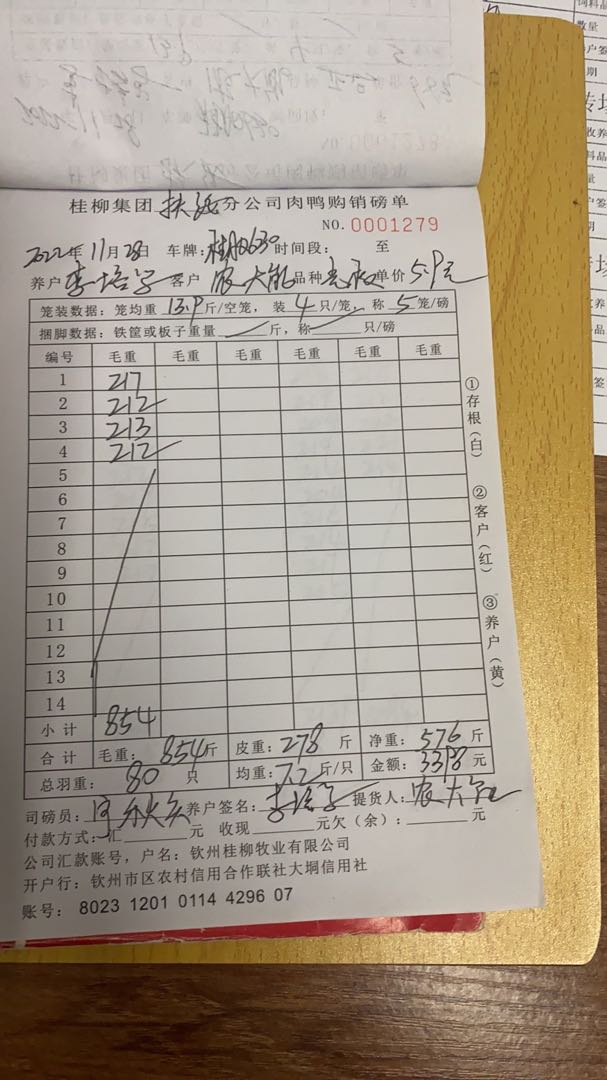 桂柳集团 分公司肉鸭购销磅单
NO. 0001279
2022年11月28日 车牌: 时间段: 至
养户 李培 客户 农大能 品种 单价 5.9元
笼装数据: 笼均重 13.9 斤/空笼, 装 4 只/笼, 称 5 笼/磅
捆脚数据: 铁筐或板子重量 斤, 称 只/磅
编号 毛重 毛重 毛重 毛重 毛重 毛重
1 217
2 212
3 213
4 212
5
6
7
8
9
10
11
12
13
14
小计 854
合计 毛重: 854斤 皮重: 278 斤 净重: 576 斤
总羽重: 80 只 均重: 7.2斤/只 金额: 3398元
司磅员: 养户签名: 李培 提货人: 农大
付款方式: 汇 元 收现 元欠(余): 元
公司汇款账号, 户名: 钦州桂柳牧业有限公司
开户行: 钦州市区农村信用合作联社大垌信用社
账号: 8023 1201 0114 4296 07
①存根(白)
②客户(红)
③养户(黄)